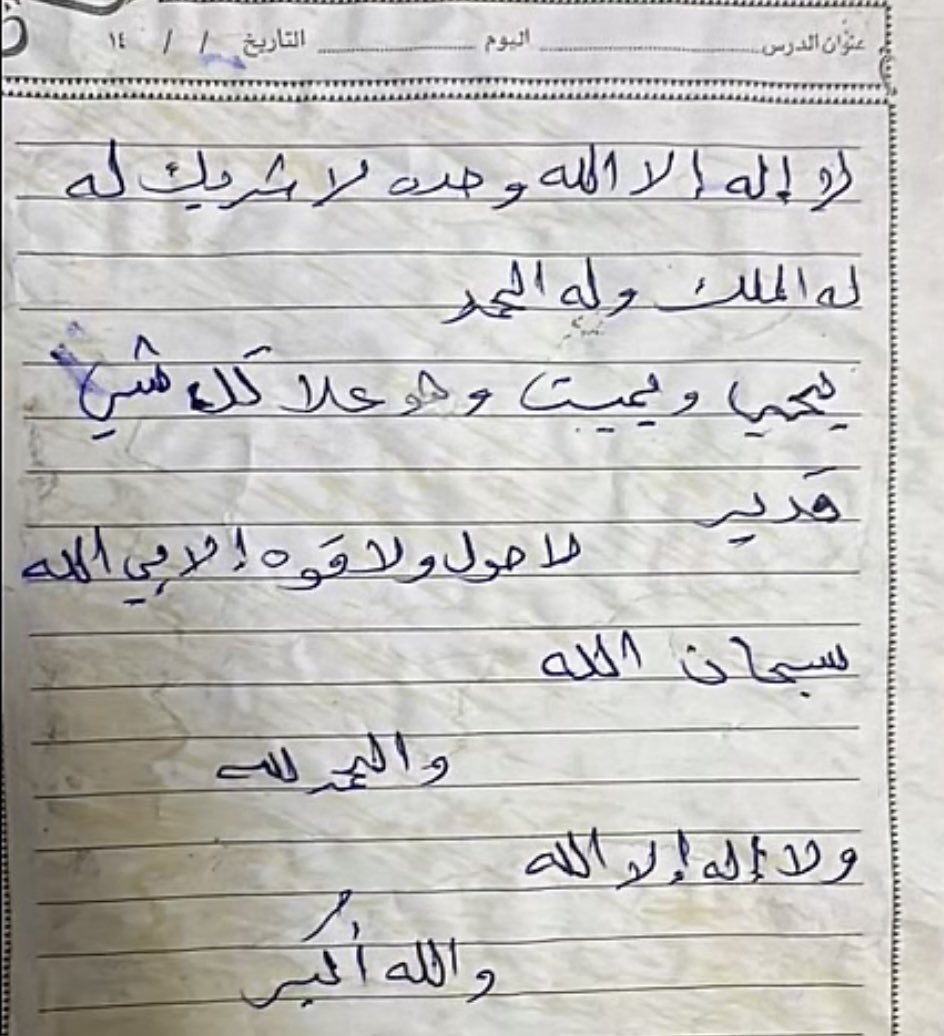 عنوان الدرس ........................ اليوم ........................ التاريخ / / ١٤
لا إله إلا الله وحده لا شريك له
له الملك وله الحمد
يحيي ويميت وهو علا كل شي
قدير
لا حول ولا قوه إلا بي الله
سبحان الله
والحمد لله
ولا إله إلا الله
والله أكبر